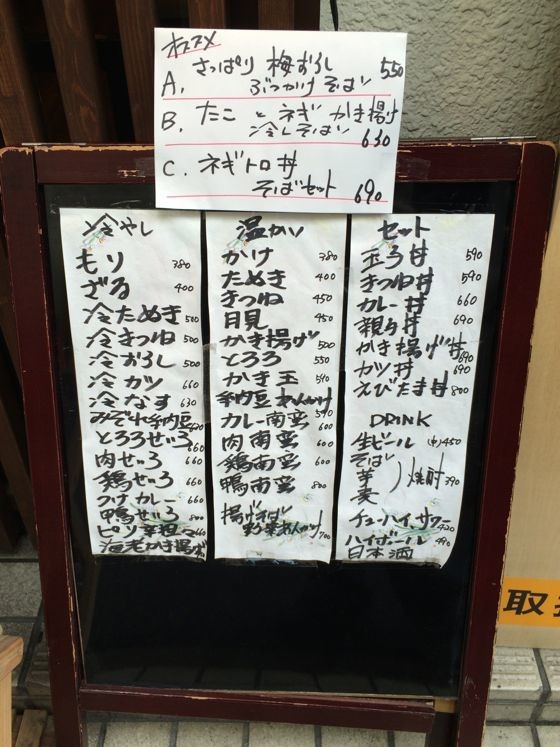 オススメ
A. さっぱり 梅おろし
ぶっかけそば 550
B. たこ と ネギ かき揚げ
冷しそば 630
C. ネギトロ丼
そばセット 690
冷やし
もり 380
ざる 400
冷たぬき 500
冷きつね 500
冷おろし 500
冷カツ 660
冷なす 630
みぞれ納豆
とろろせいろ 660
肉せいろ 660
鶏せいろ 660
つけカレー 660
鴨せいろ 800
ピリ辛担々
海老かき揚げ
温かい
かけ 380
たぬき 400
きつね 450
月見 450
かき揚げ 500
とろろ 550
かき玉 540
納豆あんかけ 590
カレー南蛮 600
肉南蛮 600
鶏南蛮 600
鴨南蛮 800
揚げそば
野菜あんかけ 700
セット
玉子丼 590
きつね丼 590
カレー丼 660
親子丼 690
かき揚げ丼 690
カツ丼 690
えびたま丼 800
DRINK
生ビール (中)450
そば
芋
麦
焼酎 390
チューハイ・サワー 420
ハイボール 490
日本酒
取